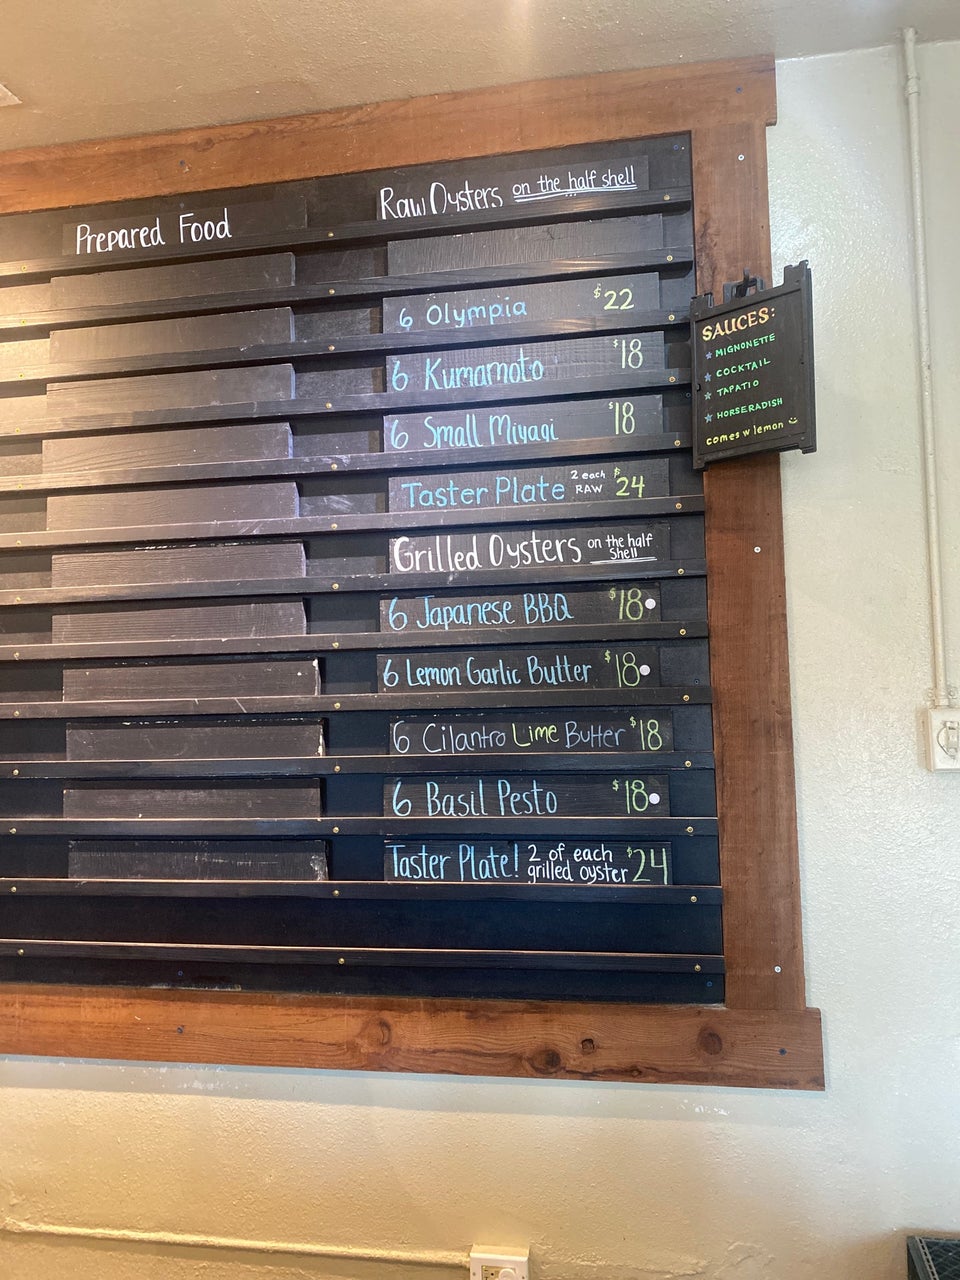 Prepared Food
Raw Oysters on the half shell
6 Olympia $22
6 Kumamoto $18
6 Small Miyagi $18
Taster Plate 2 each RAW $24
Grilled Oysters on the half shell
6 Japanese BBQ $18
6 Lemon Garlic Butter $18
6 Cilantro Lime Butter $18
6 Basil Pesto $18
Taster Plate! 2 of each grilled oyster $24
SAUCES:
MIGNONETTE
COCKTAIL
TAPATIO
HORSERADISH
comes w lemon